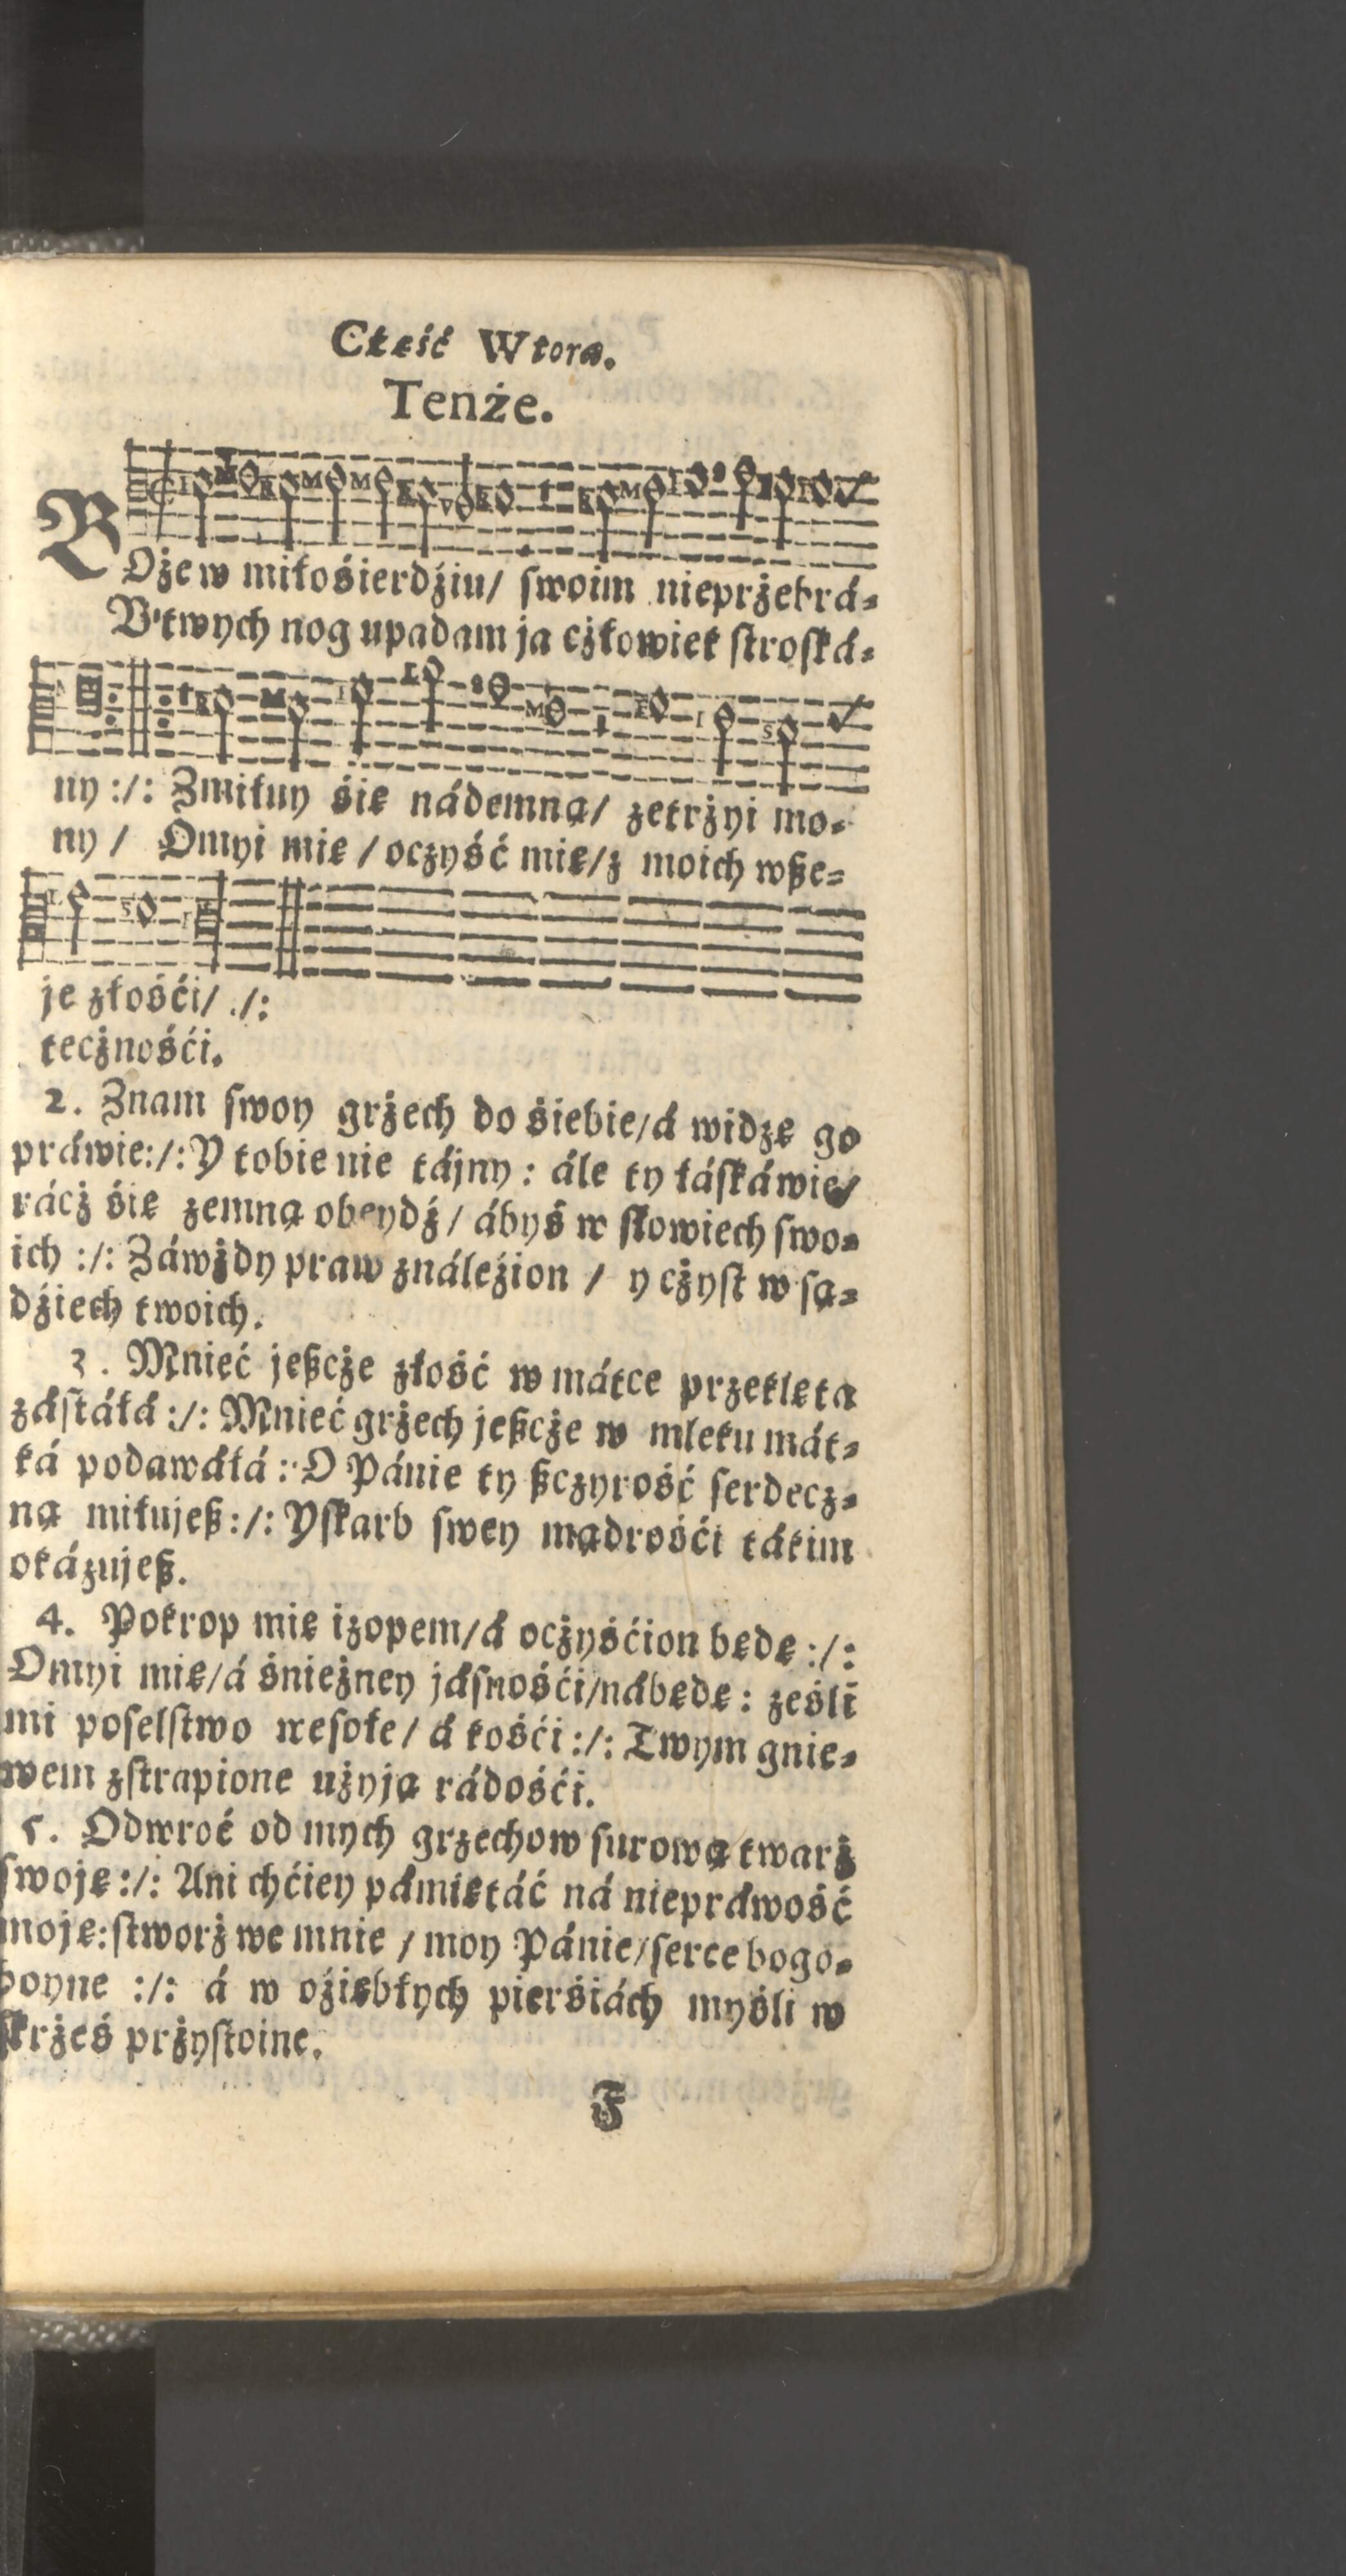 Część Wtora.
Tenże.
BOże w miłośierdźiu/ swoim nieprżebrá-
V twych nog upadam ja cżłowiek stroská-
ny :/: Zmiłuy śię nádemną/ zetrżyi mo-
ny / Omyi mię / oczyść mię/z moich wße-
je złośći/ ./:
tecżnośći.
2. Znam swoy grżech do śiebie/á widzę go
práwie:/: Y tobie nie tájny : ále ty łáskáwie/
rácż śię zemną obeydź / ábyś w słowiech swo-
ich :/: Záwżdy praw ználeźion / y cżyst w są-
dźiech twoich.
3. Mnieć jeßcże złość w mátce przeklęta
zástáłá :/: Mnieć grżech jeßcże w mleku mát-
ká podawáłá : O Pánie ty ßczyrość serdecz-
ną miłujeß :/: Y skarb swey mądrośći tákim
okázujeß.
4. Pokrop mię izopem/á ocżyśćion będę :/:
Omyi mię/á śnieżney jásnośći/nábędę : ześli
mi poselstwo wesołe/ á kośći :/: Twym gnie-
wem zstrapione użyją rádośći.
5. Odwroć od mych grzechow surową twarż
swoję :/: Ani chćiey pámiętáć ná niepráwość
moję: stworż we mnie / moy Pánie/serce bogo-
boyne :/: á w oźiębłych pierśiách myśli w
skrżeś prżystoine.
F